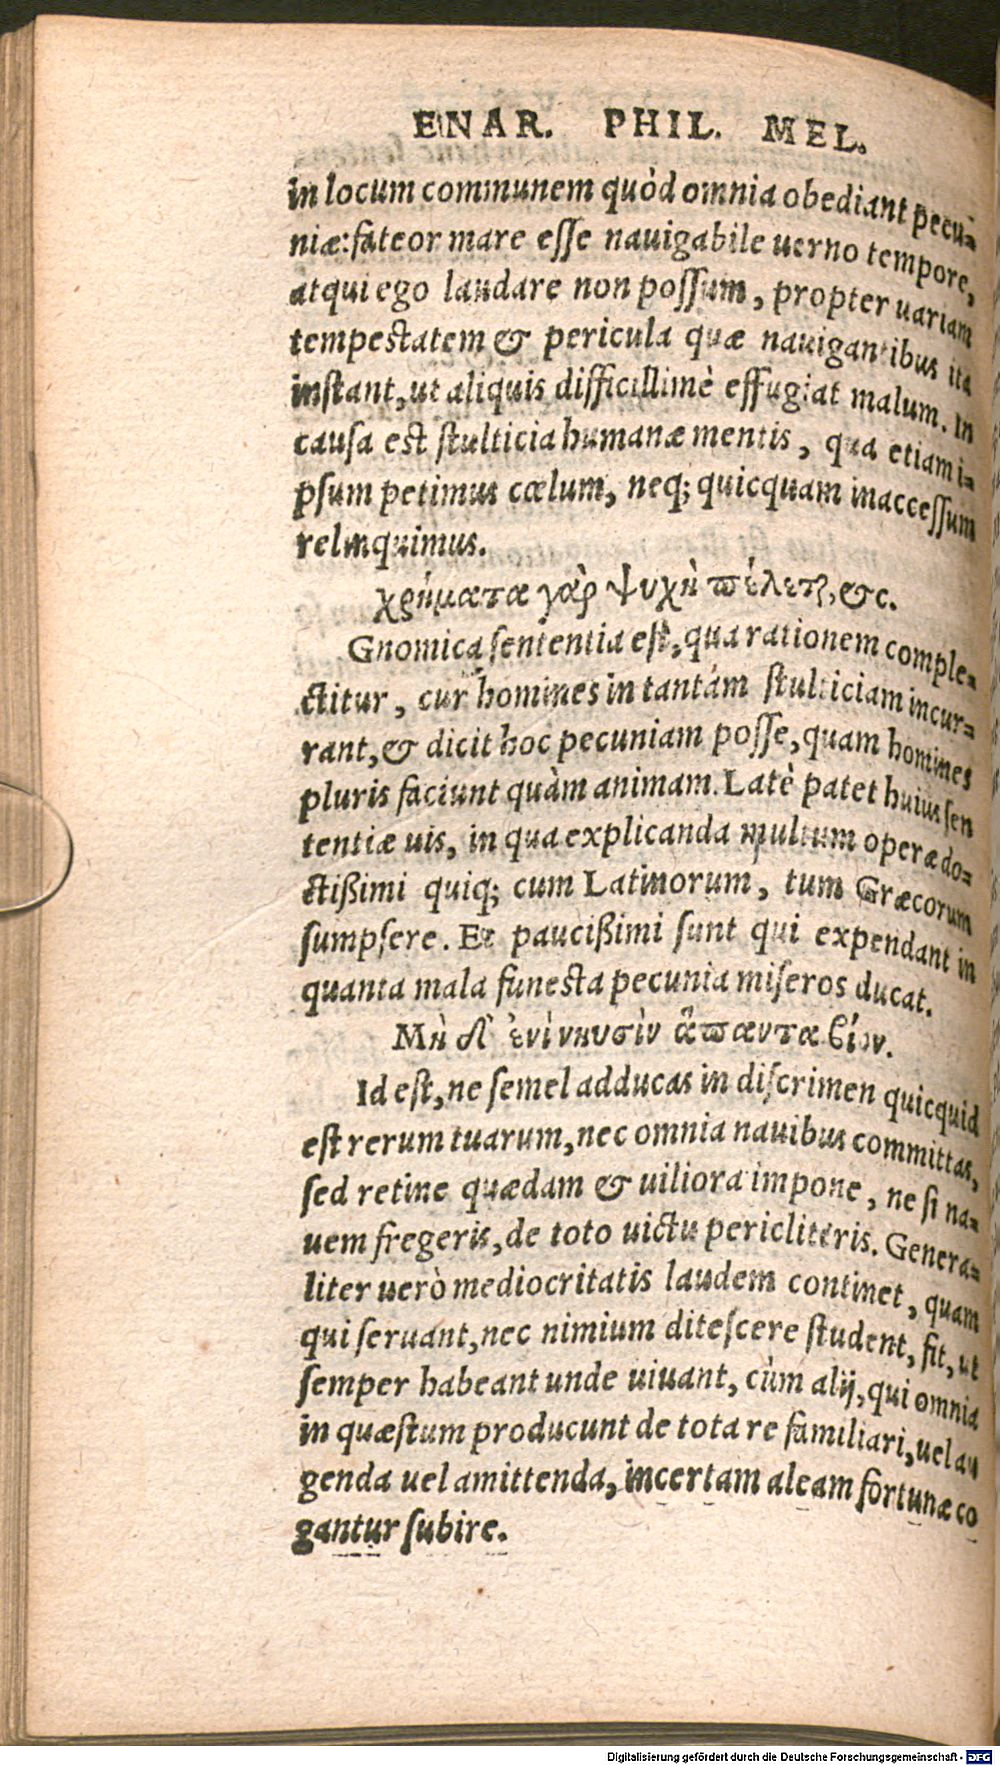 ENAR. PHIL. MEL.
in locum communem quòd omnia obediant pecu-
niæ: fateor mare eſſe nauigabile uerno tempore,
atqui ego laudare non poſſum, propter uariam
tempeſtatem & pericula quæ nauigantibus ita
inſtant, ut aliquis difficillimè effugiat malum. In
cauſa eſt ſtulticia humanæ mentis, qua etiam i-
pſum petimus cœlum, neq; quicquam inacceſſum
relinquimus.
χρήματα γὰρ ψυχὴ πέλεται, &c.
Gnomica ſententia eſt, qua rationem comple-
ctitur, cur homines in tantam ſtulticiam incur-
rant, & dicit hoc pecuniam poſſe, quam homines
pluris faciunt quàm animam. Latè patet huius ſen
tentiæ uis, in qua explicanda multum operæ do-
ctißimi quiq; cum Latinorum, tum Græcorum
ſumpſere. Et paucißimi ſunt qui expendant in
quanta mala funeſta pecunia miſeros ducat.
Μὴ δ' ἐνὶ νηυσὶν ἅπαντα βίον.
Id eſt, ne ſemel adducas in diſcrimen quicquid
eſt rerum tuarum, nec omnia nauibus committas,
ſed retine quædam & uiliora impone, ne ſi na-
uem fregeris, de toto uictu pericliteris. Genera-
liter uerò mediocritatis laudem continet, quam
qui ſeruant, nec nimium diteſcere ſtudent, fit, ut
ſemper habeant unde uiuant, cùm alij, qui omnia
in quæſtum producunt de tota re familiari, uel au
genda uel amittenda, incertam aleam fortunæ co
gantur ſubire.
Digitalisierung gefördert durch die Deutsche Forschungsgemeinschaft - DFG